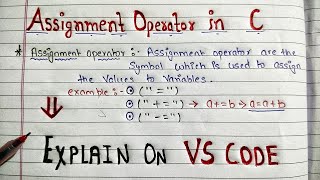 Assignment Operator in C
* Assignment operator :- Assignment operator are the
symbol which is used to assign
the values to variables.
example :- ⊙ (" = ")
⊙ (" + = ") → a+=b → a=a+b
⊙ (" -= ")
EXPLAIN ON VS CODE